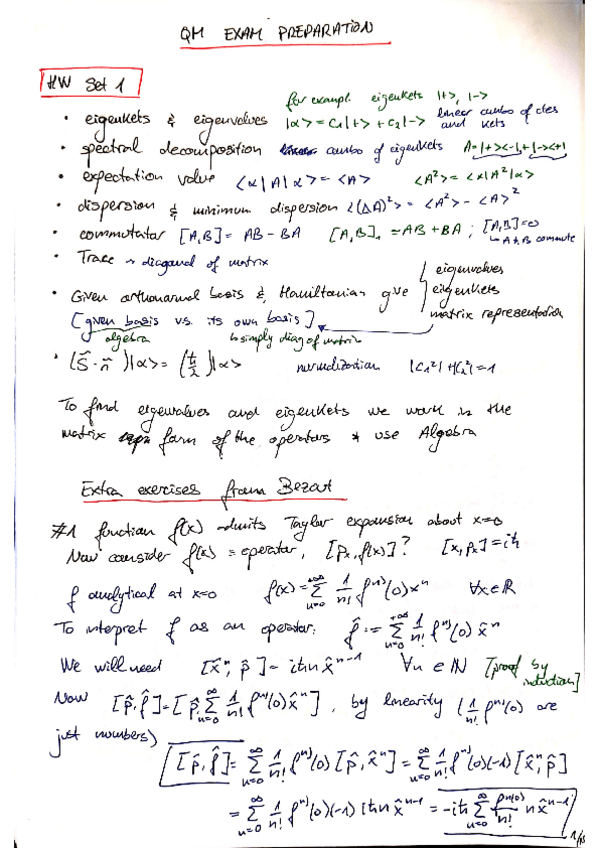 QM EXAM PREPARATION
HW Set 1
for exampl. eigenkets |+>, |->
• eigenkets & eigenvalues |α> = C₁|+> + C₂|-> linear combo of ctes and kets
• spectral decomposition combo of eigenkets A=|+><-|+|-><+|
• expectation value <α|A|α> = <A> <A²> = <α|A²|α>
• dispersion & minimum dispersion <(ΔA)²> = <A²> - <A>²
• commutator [A,B] = AB - BA [A,B]₊ = AB + BA ; [A,B]=0
↳ A & B commute
• Trace → diagonal of matrix
• Given orthonormal basis & Hamiltonian give { eigenvalues
eigenkets
matrix representation
[given basis vs. its own basis]
algebra ↳ simply diag of matrix
• (S⃗ · n⃗)|α> = (ħ/2)|α> normalization |C₁²| + |C₂²| = 1
To find eigenvalues and eigenkets we work in the
matrix form of the operators & use Algebra
Extra exercises from Bezout
#1 function f(x) admits Taylor expansion about x=0
Now consider f(x) = operator, [pₓ, f(x)]? [x, pₓ] = iħ
f analytical at x=0 f(x) = Σₙ₌₀^+∞ 1/n! f⁽ⁿ⁾(0) xⁿ ∀x∈ℝ
To interpret f as an operator: f̂ := Σₙ₌₀^+∞ 1/n! f⁽ⁿ⁾(0) x̂ⁿ
We will need [x̂ⁿ, p̂] = iħn x̂ⁿ⁻¹ ∀n ∈ ℕ [proof by induction]
Now [p̂, f̂] = [p̂, Σₙ₌₀^∞ 1/n! f⁽ⁿ⁾(0) x̂ⁿ], by linearity (1/n! f⁽ⁿ⁾(0) are
just numbers)
[p̂, f̂] = Σₙ₌₀^∞ 1/n! f⁽ⁿ⁾(0) [p̂, x̂ⁿ] = Σₙ₌₀^∞ 1/n! f⁽ⁿ⁾(0)(-1) [x̂ⁿ, p̂]
= Σₙ₌₀^∞ 1/n! f⁽ⁿ⁾(0)(-1) iħn x̂ⁿ⁻¹ = -iħ Σₙ₌₀^∞ f⁽ⁿ⁾(0)/n! n x̂ⁿ⁻¹